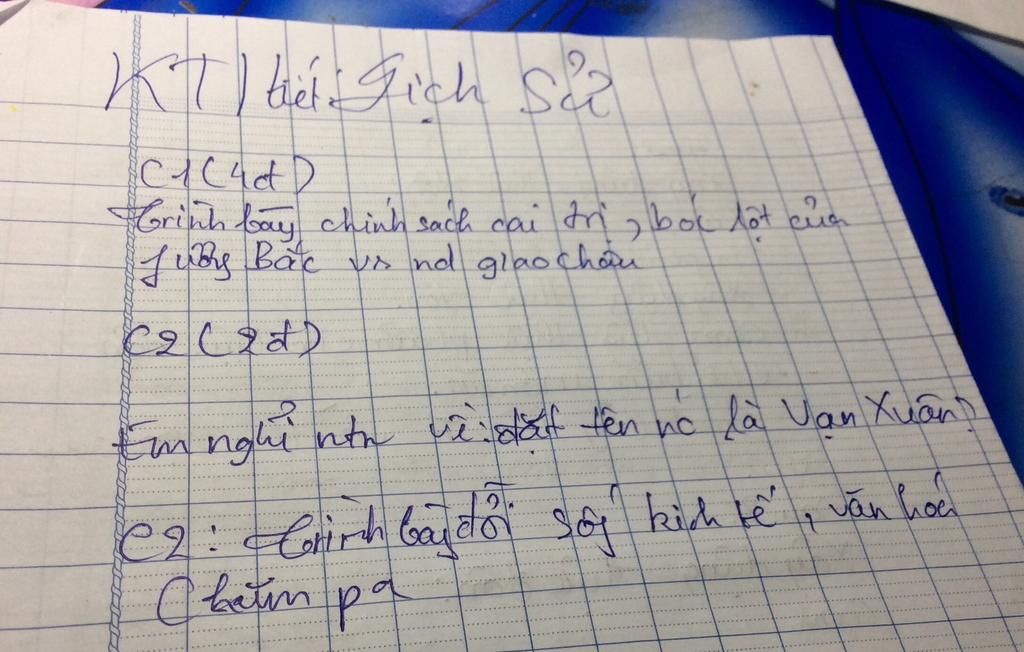 KT 1 tiết: Lịch Sử
C1 (4đ)
Trình bày chính sách cai trị, bóc lột của
fương Bắc vs nd giao châu
C2 (2đ)
Em nghỉ ntn về: đặt tên nc là Vạn Xuân?
C2: Trình bày đời sốg kinh tế, văn hoá
Chăm pa